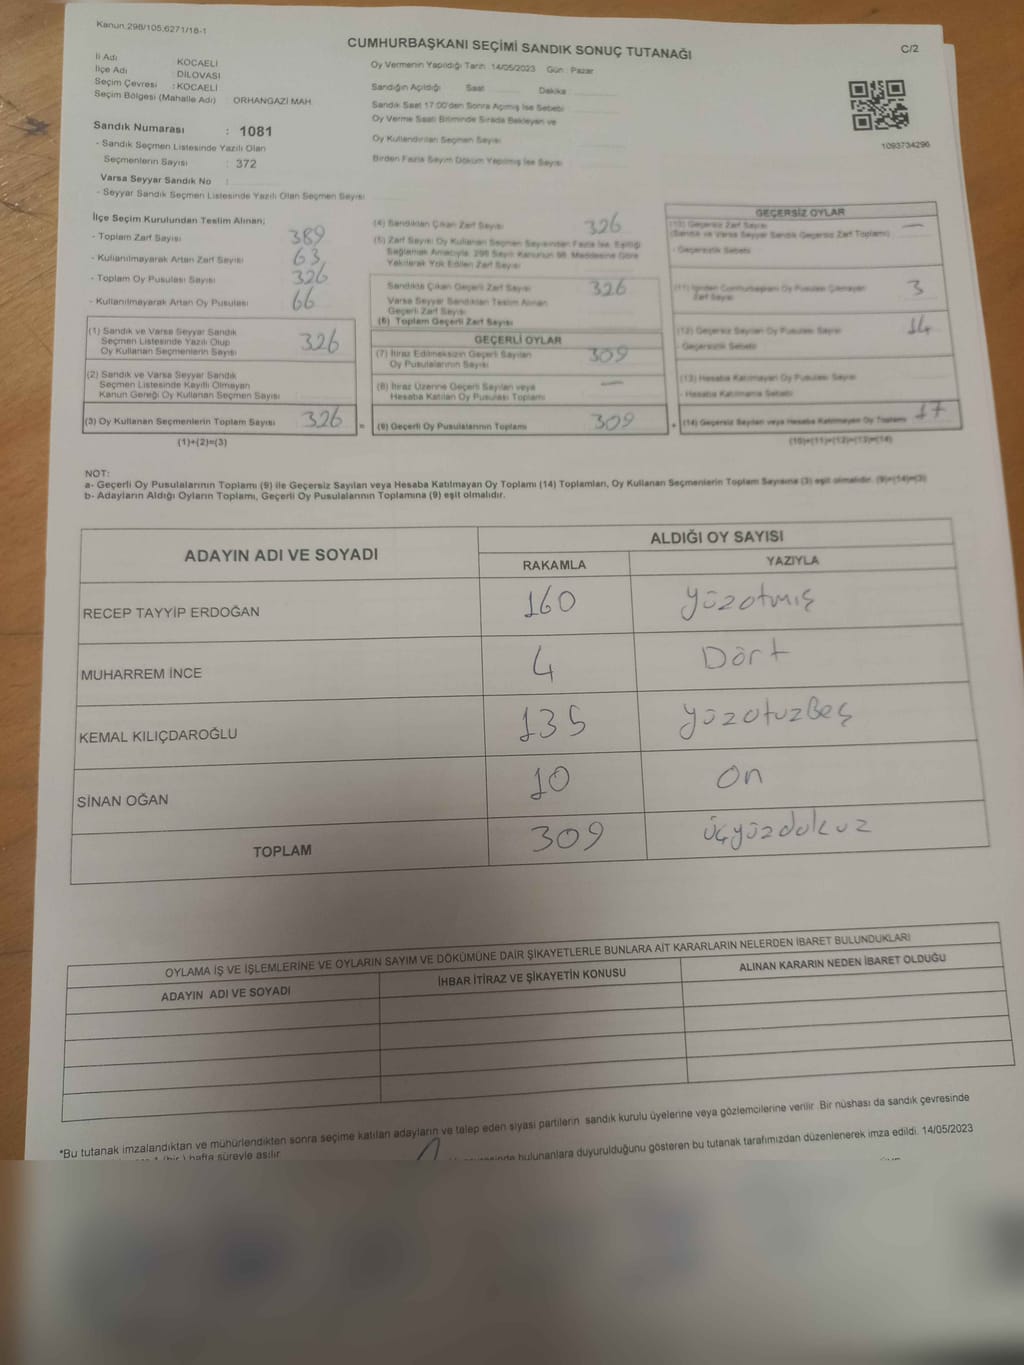 Kanun.298/105,6271/18-1
CUMHURBAŞKANI SEÇİMİ SANDIK SONUÇ TUTANAĞI
C/2
İl Adı KOCAELİ
İlçe Adı : DİLOVASI
Seçim Çevresi : KOCAELİ
Seçim Bölgesi (Mahalle Adı) : ORHANGAZİ MAH.
Sandık Numarası : 1081
- Sandık Seçmen Listesinde Yazılı Olan
Seçmenlerin Sayısı : 372
Varsa Seyyar Sandık No :
- Seyyar Sandık Seçmen Listesinde Yazılı Olan Seçmen Sayısı
Oy Vermenin Yapıldığı Tarih: 14/05/2023 Gün : Pazar
Sandığın Açıldığı Saat Dakika :
Sandık Saat 17:00'den Sonra Açılmış İse Sebebi
Oy Verme Saati Bitiminde Sırada Bekleyen ve
Oy Kullandırılan Seçmen Sayısı
Birden Fazla Sayım Döküm Yapılmış İse Sayısı
1093734296
İlçe Seçim Kurulundan Teslim Alınan;
- Toplam Zarf Sayısı 389
- Kullanılmayarak Artan Zarf Sayısı 63
- Toplam Oy Pusulası Sayısı 326
- Kullanılmayarak Artan Oy Pusulası 66
(1) Sandık ve Varsa Seyyar Sandık
Seçmen Listesinde Yazılı Olup
Oy Kullanan Seçmenlerin Sayısı 326
(2) Sandık ve Varsa Seyyar Sandık
Seçmen Listesinde Kayıtlı Olmayan
Kanun Gereği Oy Kullanan Seçmen Sayısı
(3) Oy Kullanan Seçmenlerin Toplam Sayısı 326 =
(1)+(2)=(3)
(4) Sandıktan Çıkan Zarf Sayısı 326
(5) Zarf Sayısı Oy Kullanan Seçmen Sayısından Fazla İse, Eşitliği
Sağlamak Amacıyla, 298 Sayılı Kanunun 98. Maddesine Göre
Yakılarak Yok Edilen Zarf Sayısı
Sandıkta Çıkan Geçerli Zarf Sayısı 326
Varsa Seyyar Sandıktan Teslim Alınan
Geçerli Zarf Sayısı
(6) Toplam Geçerli Zarf Sayısı
GEÇERLİ OYLAR
(7) İtiraz Edilmeksizin Geçerli Sayılan
Oy Pusulalarının Sayısı 309
(8) İtiraz Üzerine Geçerli Sayılan veya
Hesaba Katılan Oy Pusulası Toplamı —
(9) Geçerli Oy Pusulalarının Toplamı 309 +
GEÇERSİZ OYLAR
(10) Geçersiz Zarf Sayısı —
(Sandık ve Varsa Seyyar Sandık Geçersiz Zarf Toplamı)
- Geçersizlik Sebebi
(11) İçinden Cumhurbaşkanı Oy Pusulası Çıkmayan
Zarf Sayısı 3
(12) Geçersiz Sayılan Oy Pusulası Sayısı 14
- Geçersizlik Sebebi
(13) Hesaba Katılmayan Oy Pusulası Sayısı
- Hesaba Katılmama Sebebi
(14) Geçersiz Sayılan veya Hesaba Katılmayan Oy Toplamı 17
(10)+(11)+(12)+(13)=(14)
NOT:
a- Geçerli Oy Pusulalarının Toplamı (9) ile Geçersiz Sayılan veya Hesaba Katılmayan Oy Toplamı (14) Toplamları, Oy Kullanan Seçmenlerin Toplam Sayısına (3) eşit olmalıdır. (9)+(14)=(3)
b- Adayların Aldığı Oyların Toplamı, Geçerli Oy Pusulalarının Toplamına (9) eşit olmalıdır.
ADAYIN ADI VE SOYADI ALDIĞI OY SAYISI
RAKAMLA YAZIYLA
RECEP TAYYİP ERDOĞAN 160 yüzatmış
MUHARREM İNCE 4 Dört
KEMAL KILIÇDAROĞLU 135 yüzotuzBeş
SİNAN OĞAN 10 on
TOPLAM 309 üçyüzdokuz
OYLAMA İŞ VE İŞLEMLERİNE VE OYLARIN SAYIM VE DÖKÜMÜNE DAİR ŞİKAYETLERLE BUNLARA AİT KARARLARIN NELERDEN İBARET BULUNDUKLARI
ADAYIN ADI VE SOYADI İHBAR İTİRAZ VE ŞİKAYETİN KONUSU ALINAN KARARIN NEDEN İBARET OLDUĞU
*Bu tutanak imzalandıktan ve mühürlendikten sonra seçime katılan adayların ve talep eden siyasi partilerin sandık kurulu üyelerine veya gözlemcilerine verilir. Bir nüshası da sandık çevresinde
1 (bir) hafta süreyle asılır.
bulunanlara duyurulduğunu gösteren bu tutanak tarafımızdan düzenlenerek imza edildi. 14/05/2023